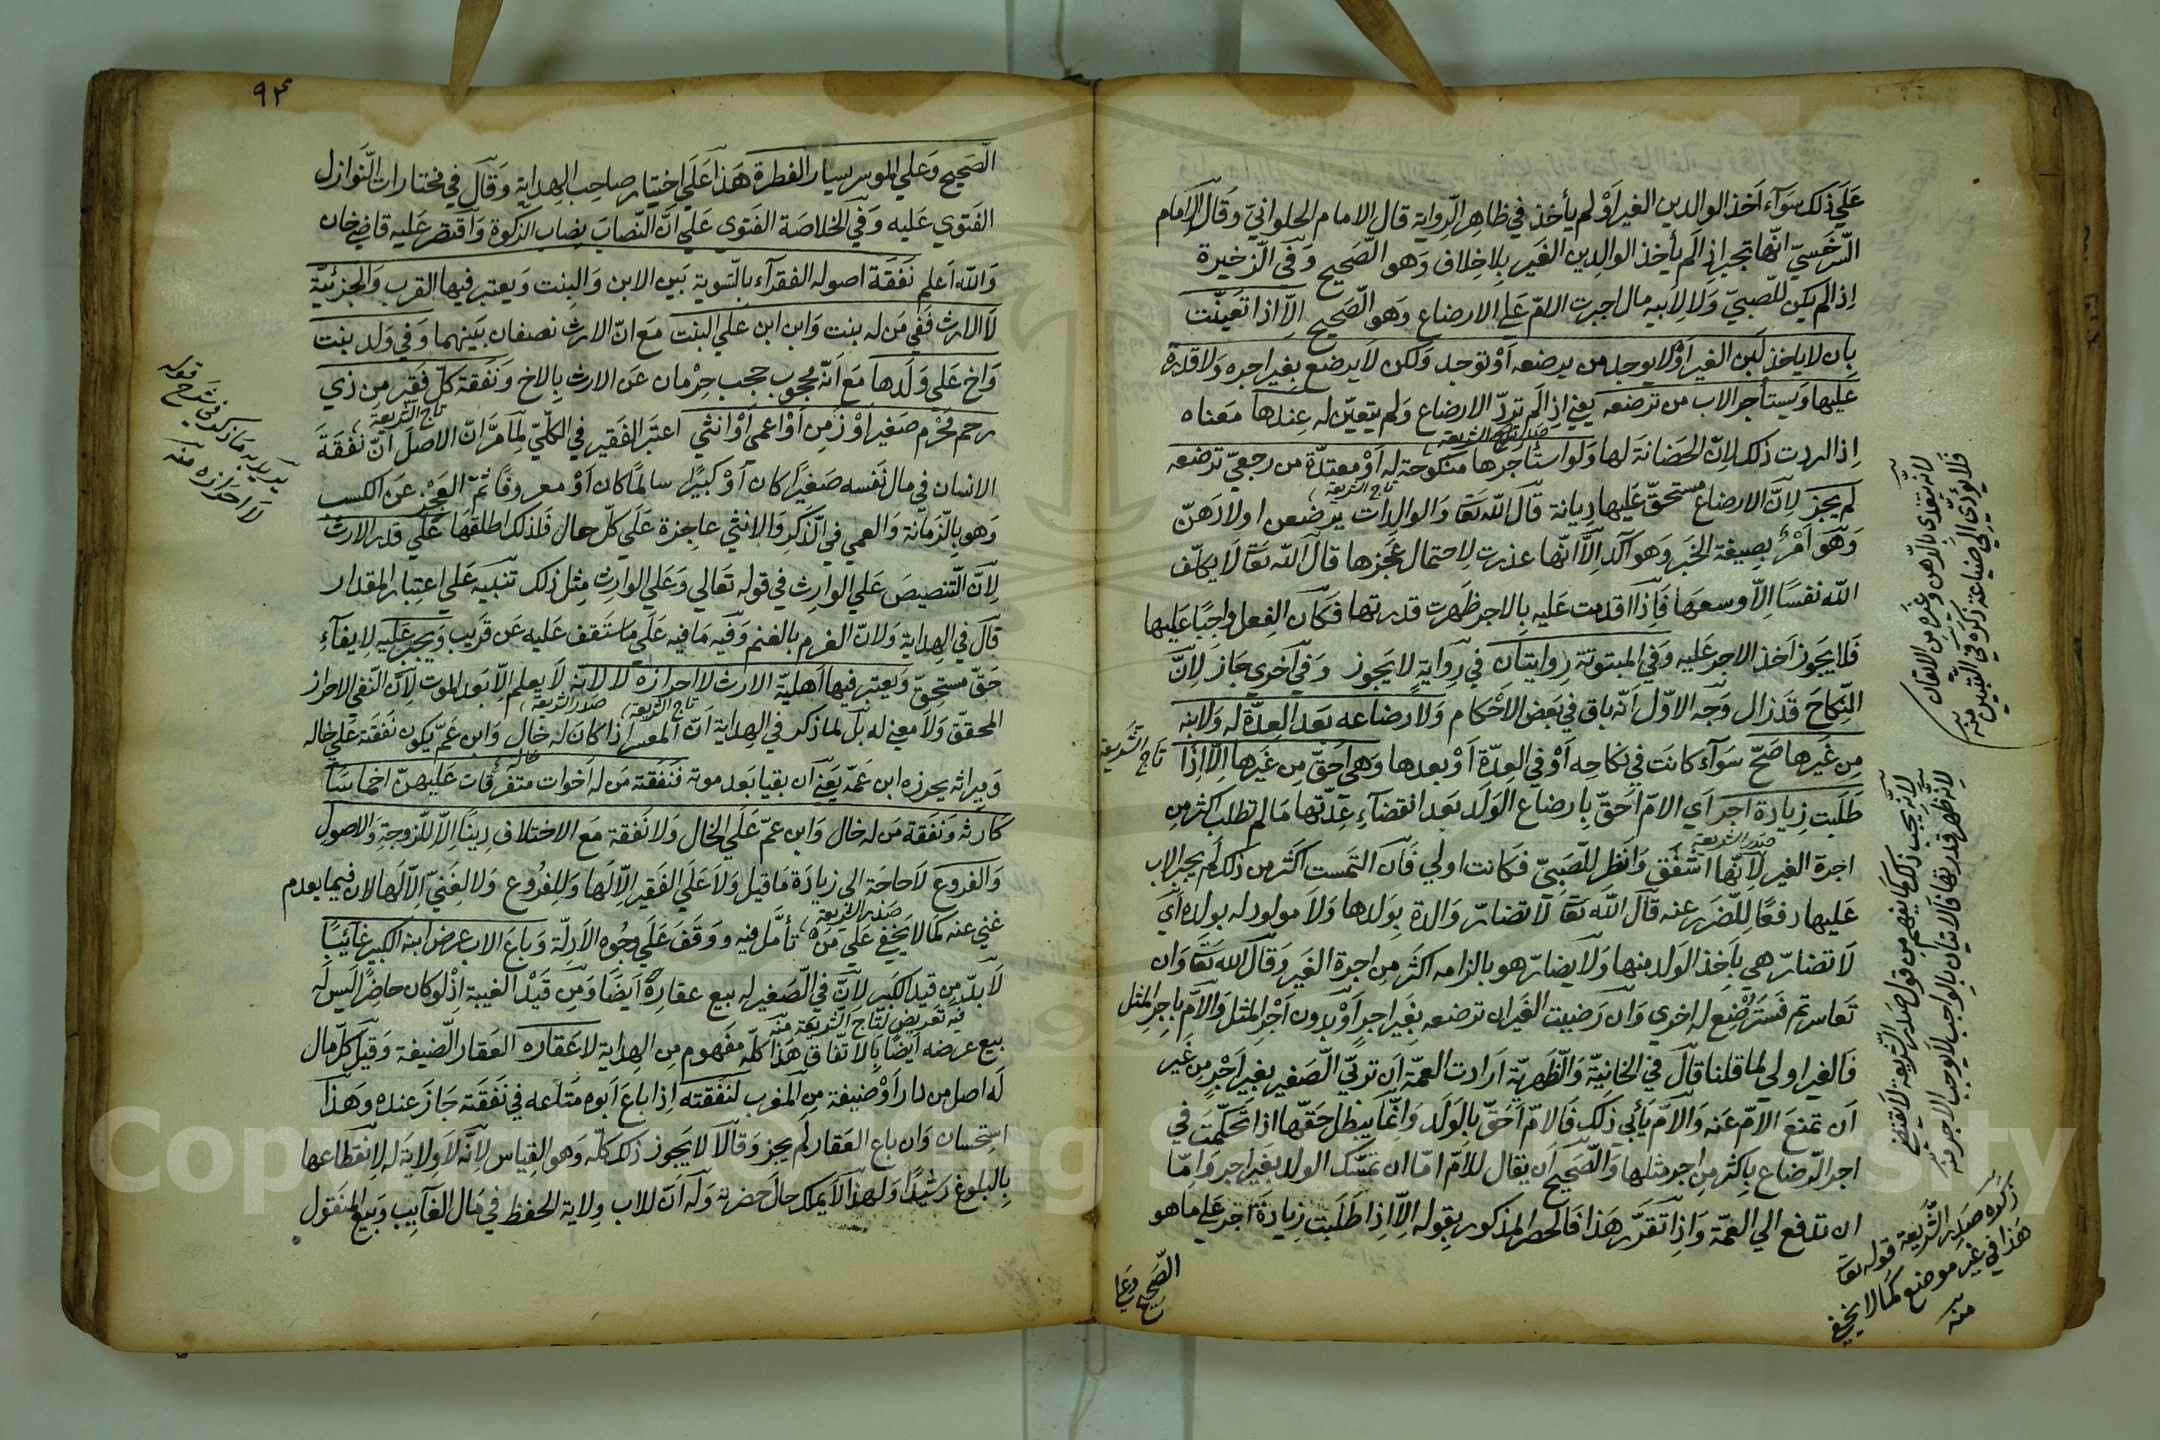 علي ذلك سوآء اخذ الوالدين الغير او لم يأخذ في ظاهر الرواية قال الامام الحلواني وقال الامام
السرخسي انها تجبر اذا لم يأخذ الوالدين الغير بلا خلاف وهو الصحيح وفي الذخيرة
اذا لم يكن للصبي ولا لابيه مال اجبرت الام علي الارضاع وهو الصحيح الا اذا تعينت
بان لا ياخذ لبن الغير او لا يوجد من يرضعه او توجد ولكن لا يرضع بغير اجره ولا قدرة
عليها ويستأجر الاب من ترضعه يعني اذا لم ترد الارضاع ولم يتعين له عندها معناه
صدر الشريعة
اذا اردت ذلك لان الحضانة لها ولو استأجرها منكوحة له او معتدة من رجعي ترضعه
تاج الشريعة
لم يجز لان الارضاع مستحق عليها ديانة قال الله تعا والوالدات يرضعن اولادهن
وهو امر بصيغة الخبر وهو آكد الا انها عذرت لاحتمال عجزها قال الله تعا لا يكلف
الله نفسا الا وسعها فاذا اقدمت عليه بالاجر ظهرت قدرتها فكان الفعل واجبا عليها
فلا يجوز اخذ الاجر عليه وفي المبتوتة روايتان في رواية لا يجوز وفي اخري جاز لان
النكاح قد زال وجه الاول انه باق في بعض الاحكام ولارضاعه بعد العدة له ولابنه
من غيرها صح سوآء كانت في نكاحه او في العدة او بعدها وهي احق من غيرها الا اذا
تاج الشريعة
طلبت زيادة اجر اي الام احق بارضاع الولد بعد انقضآء عدتها ما لم تطلب اكثر من
صدر الشريعة
اجرة الغير لانها اشفق وانظر للصبي فكانت اولي فان التمست اكثر من ذلك لم يجبر الاب
عليها دفعا للضرر عنه قال الله تعا لا تضار والدة بولدها ولا مولود له بولده اي
لا تضار هي باخذ الولد منها ولا يضار هو بالزامه اكثر من اجرة الغير وقال الله تعا وان
تعاسرتم فسترضع له اخري وان رضيت الغير ان ترضعه بغير اجر او بدون اجر المثل والام باجر المثل
فالغير اولي لما قلنا قال في الخانية والظهرية ارادت العمة ان تربي الصغير بغير اجر من غير
ان تمنع الام عنه والام يأبي ذلك فالام احق بالولد وانما يبطل حقها اذا تحكمت في
اجر الرضاع باكثر من اجر مثلها والصحيح ان يقال للام اما ان تمسك الولد بغير اجر واما
ان تدفع الي العمة واذا تقرر هذا فالحصر المذكور بقوله الا اذا طلبت زيادة اجر علي ما هو
الصحيح وعلي
لانه يجب ذلك كما يفهم من قول صدر الشريعة لا تقتضي
لانه ظهر قدرتها فالاتيان بالواجب لا يوجب الاجر منه
ذكره صدر الشريعة قوله تعا
هذا في غير موضع كما لا يخفي
منه
٩٣
الصحيح وعلي الموسر يسار الفطرة هذا علي اختيار صاحب الهداية وقال في مختارات النوازل
الفتوي عليه وفي الخلاصة الفتوي علي ان النصاب نصاب الزكوة واقتصر عليه قاضي خان
والله اعلم نفقة اصوله الفقرآء بالتسوية بين الابن والبنت ويعتبر فيها القرب والجزئية
لا الارث ففي من له بنت وابن ابن علي البنت مع ان الارث نصفان بينهما وفي ولد بنت
واخ علي ولدها مع انه محجوب حجب حرمان عن الارث بالاخ ونفقة كل فقير من ذي
تاج الشريعة
رحم محرم صغير او زمن او اعمي او انثي اعتبر الفقير في الكلي لما مر ان الاصل ان نفقة
الانسان في مال نفسه صغيرا كان او كبيرا سالما كان او معروفا ثم العجز عن الكسب
وهو بالزمانة والعمي في الذكر والانثي عاجزة علي كل حال فلذلك اطلقها علي قدر الارث
لان التنصيص علي الوارث في قوله تعالي وعلي الوارث مثل ذلك تنبيه علي اعتبار المقدار
قال في الهداية ولان الغرم بالغنم وفيه ما فيه علي ما ستقف عليه عن قريب ويجبر عليه لايفآء
حق مستحق ويعتبر فيها اهلية الارث لا احرازه لا لانه لا يعلم الا بعد الموت لان النفي الاحراز
تاج الشريعة صدر الشريعة
المحقق ولا معني له بل لما ذكر في الهداية ان المعسر اذا كان له خال وابن عم يكون نفقته علي خاله
وميراثه يحوزه ابن عمه يعني ان بقيا بعد موته فنفقة من له اخوات متفرقات عليهن اخماسا
كارثه ونفقة من له خال وابن عم علي الخال ولا نفقة مع الاختلاف دينا الا للزوجة والاصول
والفروع لا حاجة الي زيادة ما قيل ولا علي الفقير الا لها وللفروع ولا الغني الا لها لان فيما يعدم
صدر الشريعة
غني عنه كما لا يخفي علي من تأمل فيه ووقف علي وجوه الادلة وباع الاب عرض ابنه الكبير غائبا
لا بد من قيد الكبر لان في الصغير له بيع عقاره ايضا ومن قيد الغيبة اذ لو كان حاضرا ليس له
فيه تعريض لتاج الشريعة منه
بيع عرضه ايضا بالاتفاق هذا كله مفهوم من الهداية لا عقاره العقار الضيعة وقيل كل مال
له اصل من دار او ضيعة من المغرب لنفقته اذا باع ابوه متاعه في نفقته جاز عنده وهذا
استحسان وان باع العقار لم يجز وقالا لا يجوز ذلك كله وهو القياس لانه لا ولاية له لانقطاعها
بالبلوغ رشيدا ولهذا لا يملك حال حضرته وله ان للاب ولاية الحفظ في مال الغآيب وبيع المنقول
يريد به ما ذكر في شرح قوله
لا احرازه منه
Copyright © King Saud University